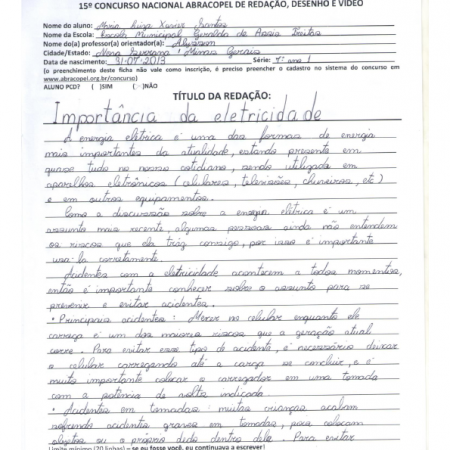 15º CONCURSO NACIONAL ABRACOPEL DE REDAÇÃO, DESENHO E VÍDEO
Nome do aluno: Maria Luiza Xavier Santos
Nome da Escola: Escola Municipal Geraldo de Assis Freitas
Nome do(a) professor(a) orientador(a):
Cidade/Estado: Nova Serrana / Minas Gerais
Data de nascimento: 31-07-2013 Série: 7º ano 1
(o preenchimento desta ficha não vale como inscrição, é preciso preencher o cadastro no sistema do concurso em
www.abracopel.org.br/concurso)
ALUNO PCD? ( )SIM ( )NÃO
TÍTULO DA REDAÇÃO:
Importância da eletricidade
A energia elétrica é uma das formas de energia
mais importantes da atualidade, estando presente em
quase tudo no nosso cotidiano, sendo utilizada em
aparelhos eletrônicos (celulares, televisões, chuveiros, etc)
e em outros equipamentos.
Como a discussão sobre a energia elétrica é um
assunto mais recente, algumas pessoas ainda não entendem
os riscos que ela tráz consigo, por isso é importante
usá-la corretamente.
Acidentes com a eletricidade acontecem a todos momentos,
então é importante conhecer sobre o assunto para se
prevenir e evitar acidentes.
• Principais acidentes: Mexer no celular enquanto ele
carrega é um dos maiores riscos que a geração atual
corre. Para evitar esse tipo de acidente, é necessário deixar
o celular carregando até a carga se concluir, e é
muito importante colocar o carregador em uma tomada
com a potência de volts indicada.
• Acidentes em tomadas: muitas crianças acabam
sofrendo acidentes graves em tomadas, por colocarem
objetos ou o próprio dedo dentro dela. Para evitar
(Limite mínimo (20 linhas) – se ou fosse você, eu continuava a escrever!